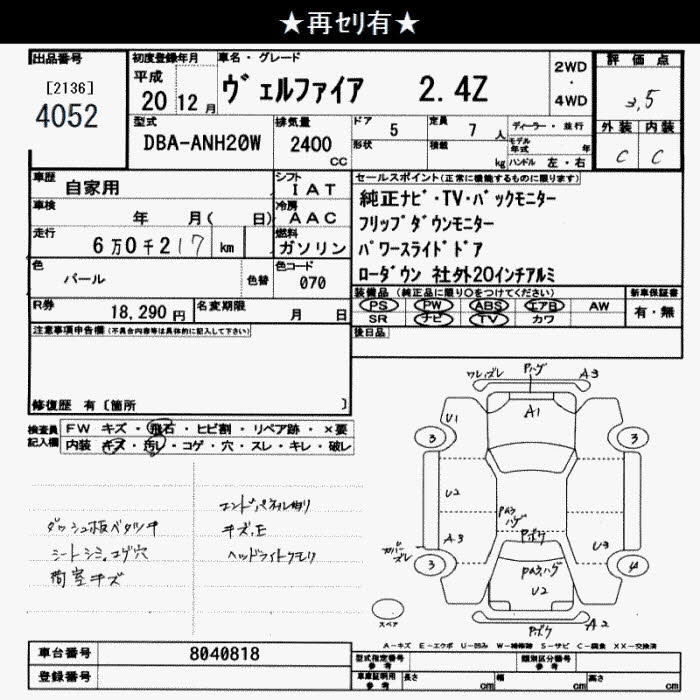 ★再セリ有★
出品番号
[2136]
4052
初度登録年月
平成
20 12月
車名・グレード
ヴェルファイア 2.4Z
2WD
・
4WD
評価点
3,5
外装 内装
C C
型式
DBA-ANH20W
排気量
2400
cc
ドア 5
形状
定員 7 人
積載 kg
ディーラー・並行
モデル年式 年
ハンドル 左・右
車歴 自家用
車検 年 月( 日)
走行 6万0千217 km
シフト IAT
冷房 AAC
燃料 ガソリン
色 パール 色替
色コード 070
R券 18,290円
名変期限 月 日
セールスポイント(正常に機能するものに限ります)
純正ナビ・TV・バックモニター
フリップダウンモニター
パワースライドドア
ローダウン 社外20インチアルミ
装備品(純正品に限り○をつけてください)
PS PW ABS エアB AW
SR ナビ TV カワ
新車保証書
有・無
後日品
注意事項申告欄(不具合内容等は具体的に記入して下さい)
修復歴 有〔箇所 〕
検査員記入欄
FW キズ・飛石・ヒビ割・リペア跡・×要
内装 キズ・汚レ・コゲ・穴・スレ・キレ・破レ
ダッシュ板ベタツキ
シートシミ、コゲ穴
荷室キズ
ヘッドライトクモリ
Pハゲ
A3
A1
U1
3
3
U2
A3
3
U3
4
Pボケ
U2
A2
Pボケ
スペア
A-キズ E-エクボ U-凹み W-補修跡 S-サビ C-腐食 XX-交換済
車台番号 8040818
登録番号
型式指定番号
参考
類別区分番号
参考
車庫証明用
参考
長さ cm
幅 cm
高さ cm